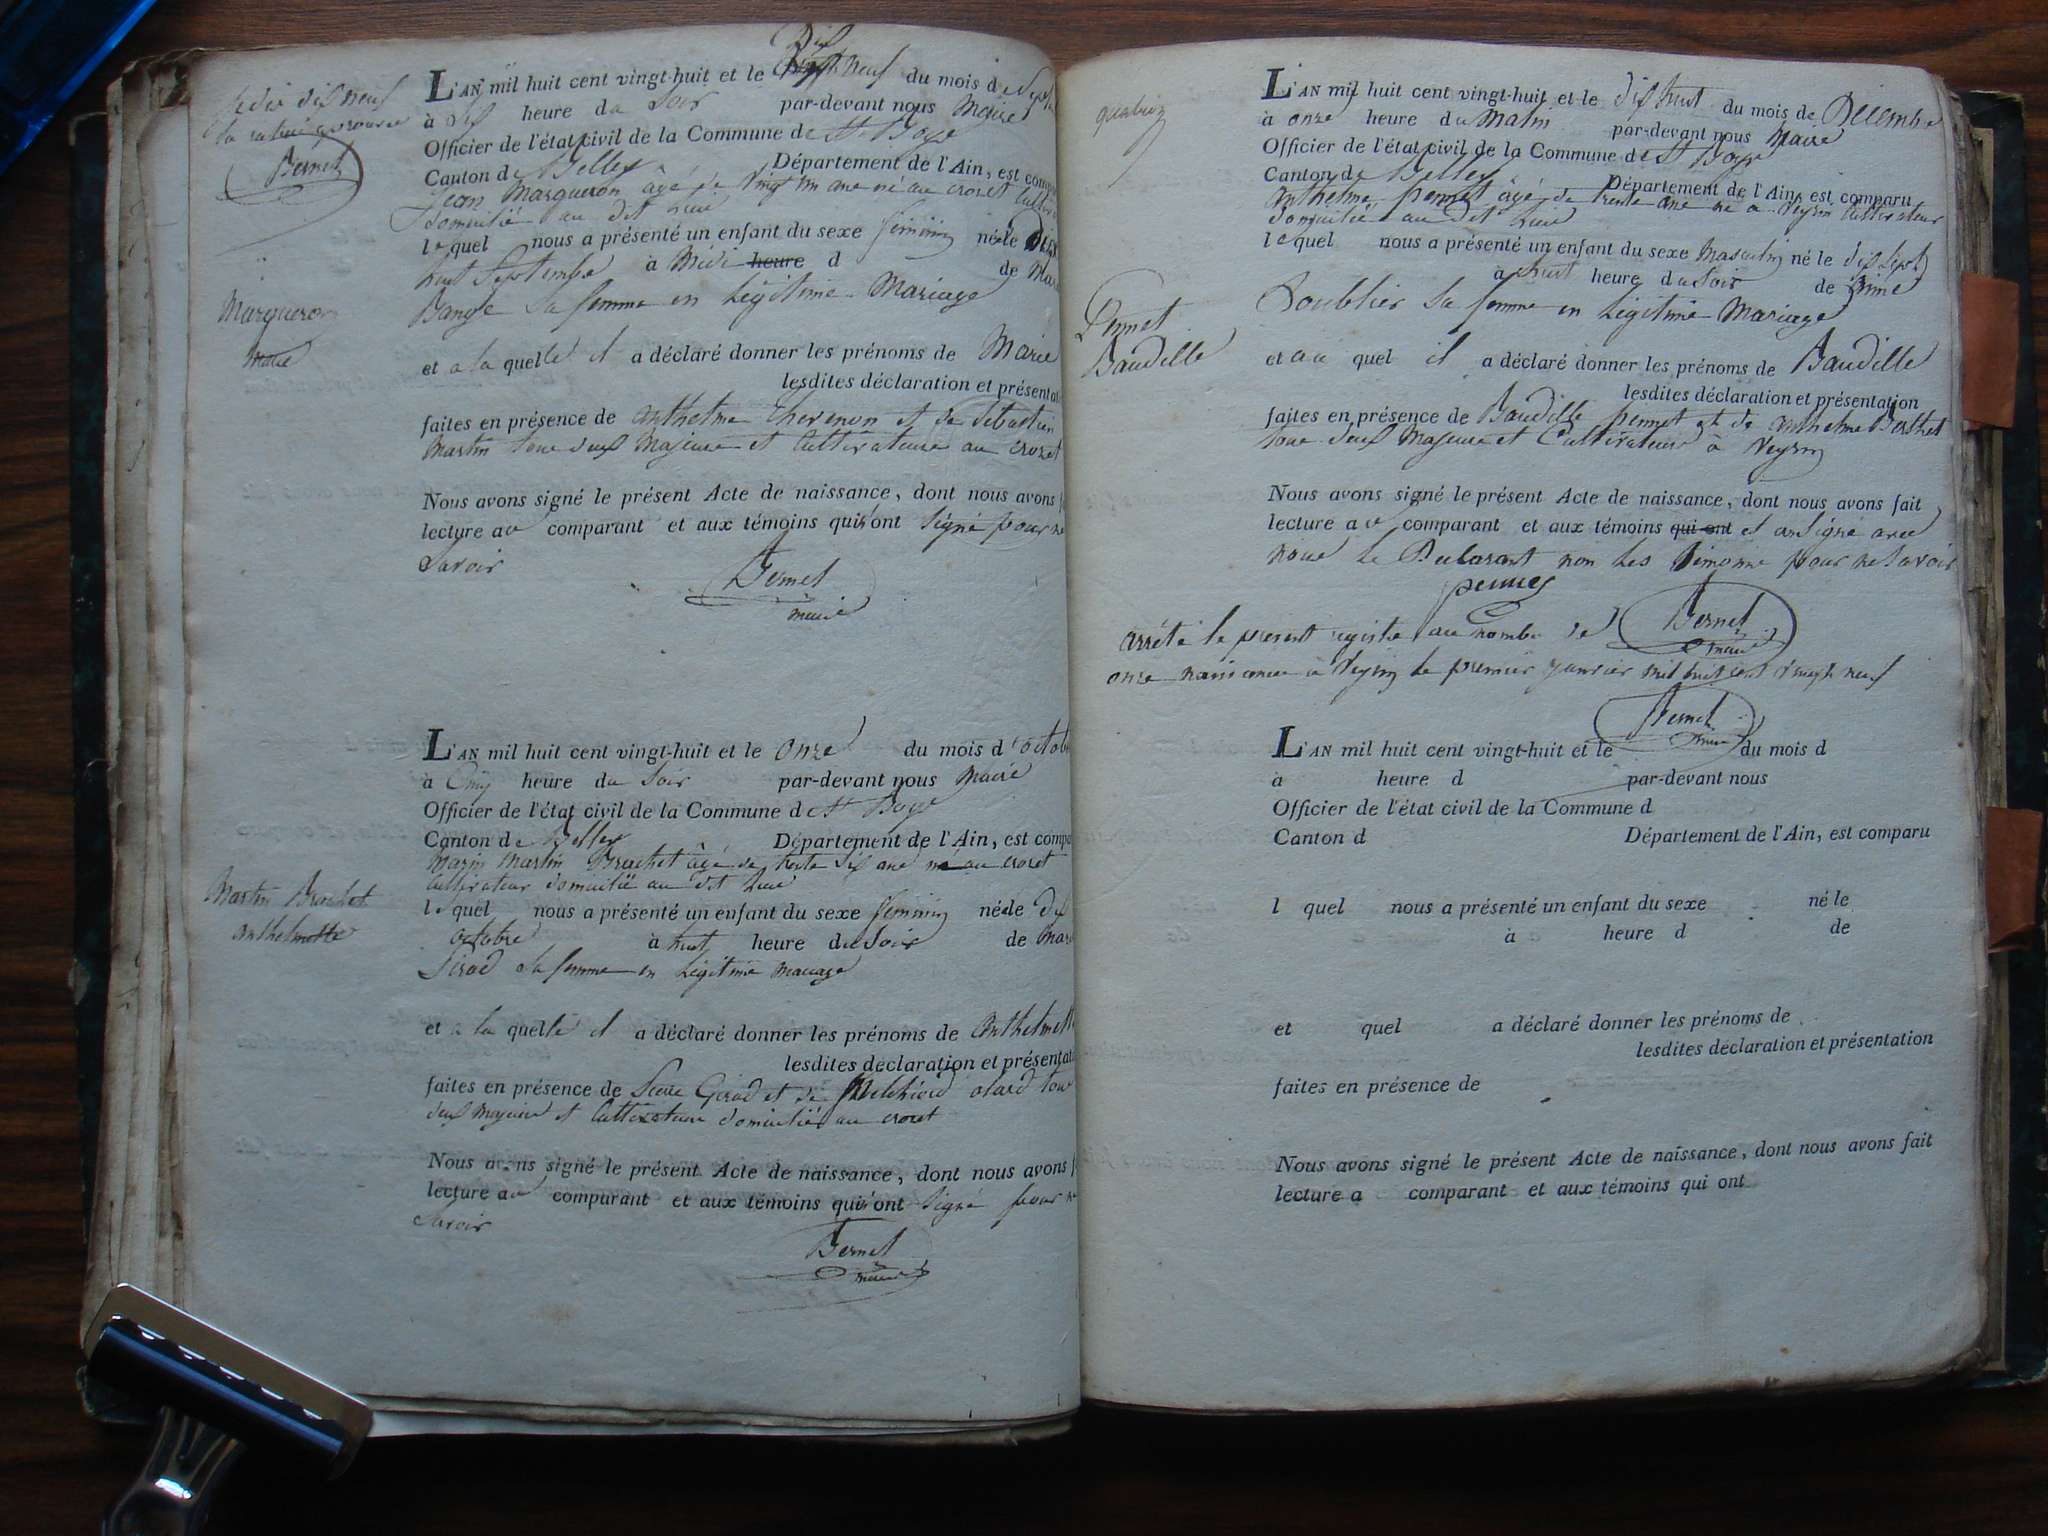 je dis dix neuf
la rature approuvée
Bernet
L'AN mil huit cent vingt-huit et le Dix neuf du mois de Septe
à Six heure du Soir par-devant nous Maire
Officier de l'état civil de la Commune de St Boys
Canton de Belley Département de l'Ain, est compa
Jean Margueron âgé de vingt un ans né au crozet Cultiv
Domicilié au dit Lieu
le quel nous a présenté un enfant du sexe féminin née le Dix
huit Septembre à Midi heure d de Mar
Bange Sa femme en Légitime Mariage
Margueron
Marie
et a la quelle il a déclaré donner les prénoms de Marie
lesdites déclaration et présentat
faites en présence de anthelme Thevenon et de Sébastien
Martin tous deux Majeurs et Cultivateurs au crozet
Nous avons signé le présent Acte de naissance, dont nous avons f
lecture au comparant et aux témoins qui n'ont Signé pour ne
Savoir
Bernet
maire
L'AN mil huit cent vingt-huit et le onze du mois d'octob
à Cinq heure du Soir par-devant nous Maire
Officier de l'état civil de la Commune de St Boys
Canton de Belley Département de l'Ain, est compa
Marin Martin Brochet âgé de trente Six ans né au crozet
Cultivateur domicilié au dit Lieu
Martin Brochet
anthelmette
le quel nous a présenté un enfant du sexe féminin née le dix
octobre à huit heure du Soir de Mar
Girod Sa femme en Légitime Mariage
et a la quelle il a déclaré donner les prénoms de anthelmett
lesdites déclaration et présentat
faites en présence de Girod et de Melchiord olard tous
deux Majeurs et Cultivateurs domiciliés au crozet
Nous avons signé le présent Acte de naissance, dont nous avons f
lecture au comparant et aux témoins qui n'ont Signé pour ne
Savoir
Bernet
maire
L'AN mil huit cent vingt-huit et le dix huit du mois de Décembre
à onze heure du Matin par-devant nous Maire
Officier de l'état civil de la Commune de St Boys
Canton de Belley Département de l'Ain, est comparu
anthelme pennet âgé de trente ans né à Veyrin Cultivateur
domicilié au dit Lieu
le quel nous a présenté un enfant du sexe Masculin né le dix Sept
à huit heure du Soir de
Soublier Sa femme en Légitime Mariage
Pennet
Baudille
et au quel il a déclaré donner les prénoms de Baudille
lesdites déclaration et présentation
faites en présence de Baudille pennet et de anthelme Berthet
tous deux Majeurs et Cultivateurs à Veyrin
Nous avons signé le présent Acte de naissance, dont nous avons fait
lecture au comparant et aux témoins qui ont et ont Signé avec
nous le Déclarant non les témoins pour ne Savoir
pennet
Bernet
maire
arrêté le présent registre au nombre de
onze naissances à Veyrin le premier janvier mil huit cent vingt neuf
Bernet
maire
L'AN mil huit cent vingt-huit et le du mois d
à heure d par-devant nous
Officier de l'état civil de la Commune d
Canton d Département de l'Ain, est comparu
l quel nous a présenté un enfant du sexe né le
à heure d de
et quel a déclaré donner les prénoms de
lesdites déclaration et présentation
faites en présence de
Nous avons signé le présent Acte de naissance, dont nous avons fait
lecture a comparant et aux témoins qui ont